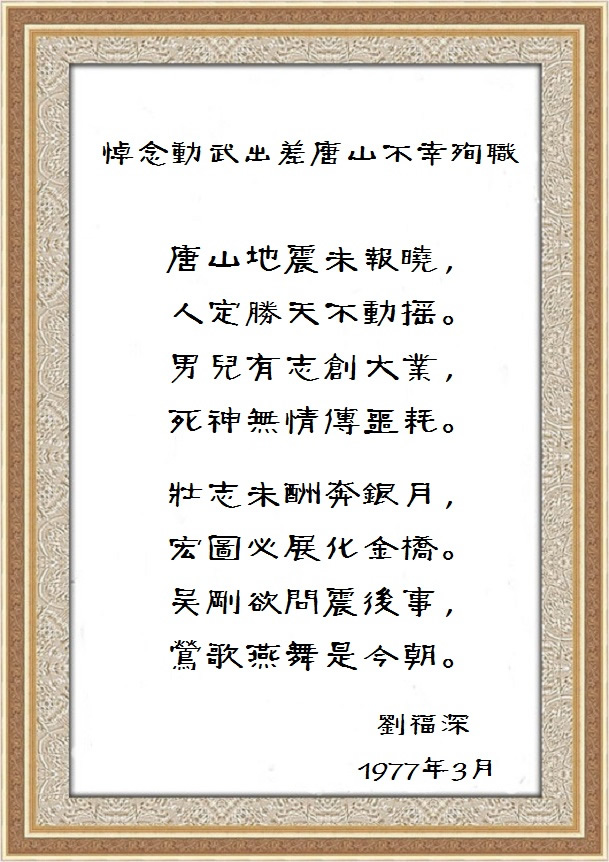 悼念動武出差唐山不幸殉職
唐山地震未報曉，
人定勝天不動摇。
男兒有志創大業，
死神無情傳噩耗。
壯志未酬奔銀月，
宏圖必展化金橋。
吴剛欲問震後事，
鶯歌燕舞是今朝。
劉福深
1977年3月